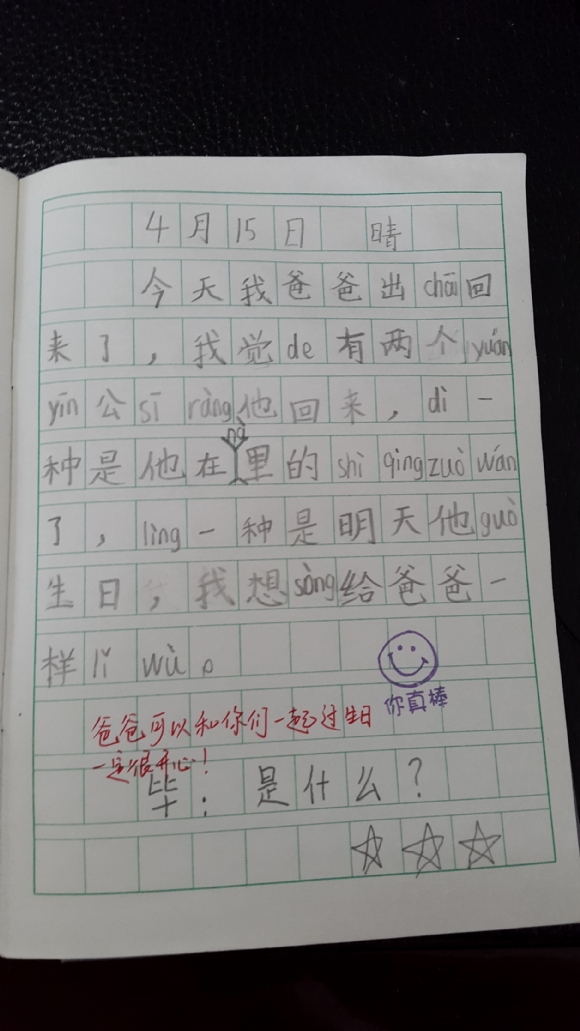 4月15日 晴
今天我爸爸出chāi回
来了，我觉de有两个yuán
yīn公sī ràng他回来，dì一
种是他在nà里的shì qing zuò wán
了，lìng一种是明天他guò
生日，我想sòng给爸爸一
样lǐ wù。
你真棒
爸爸可以和你们一起过生日
一定很开心！
毕：是什么？